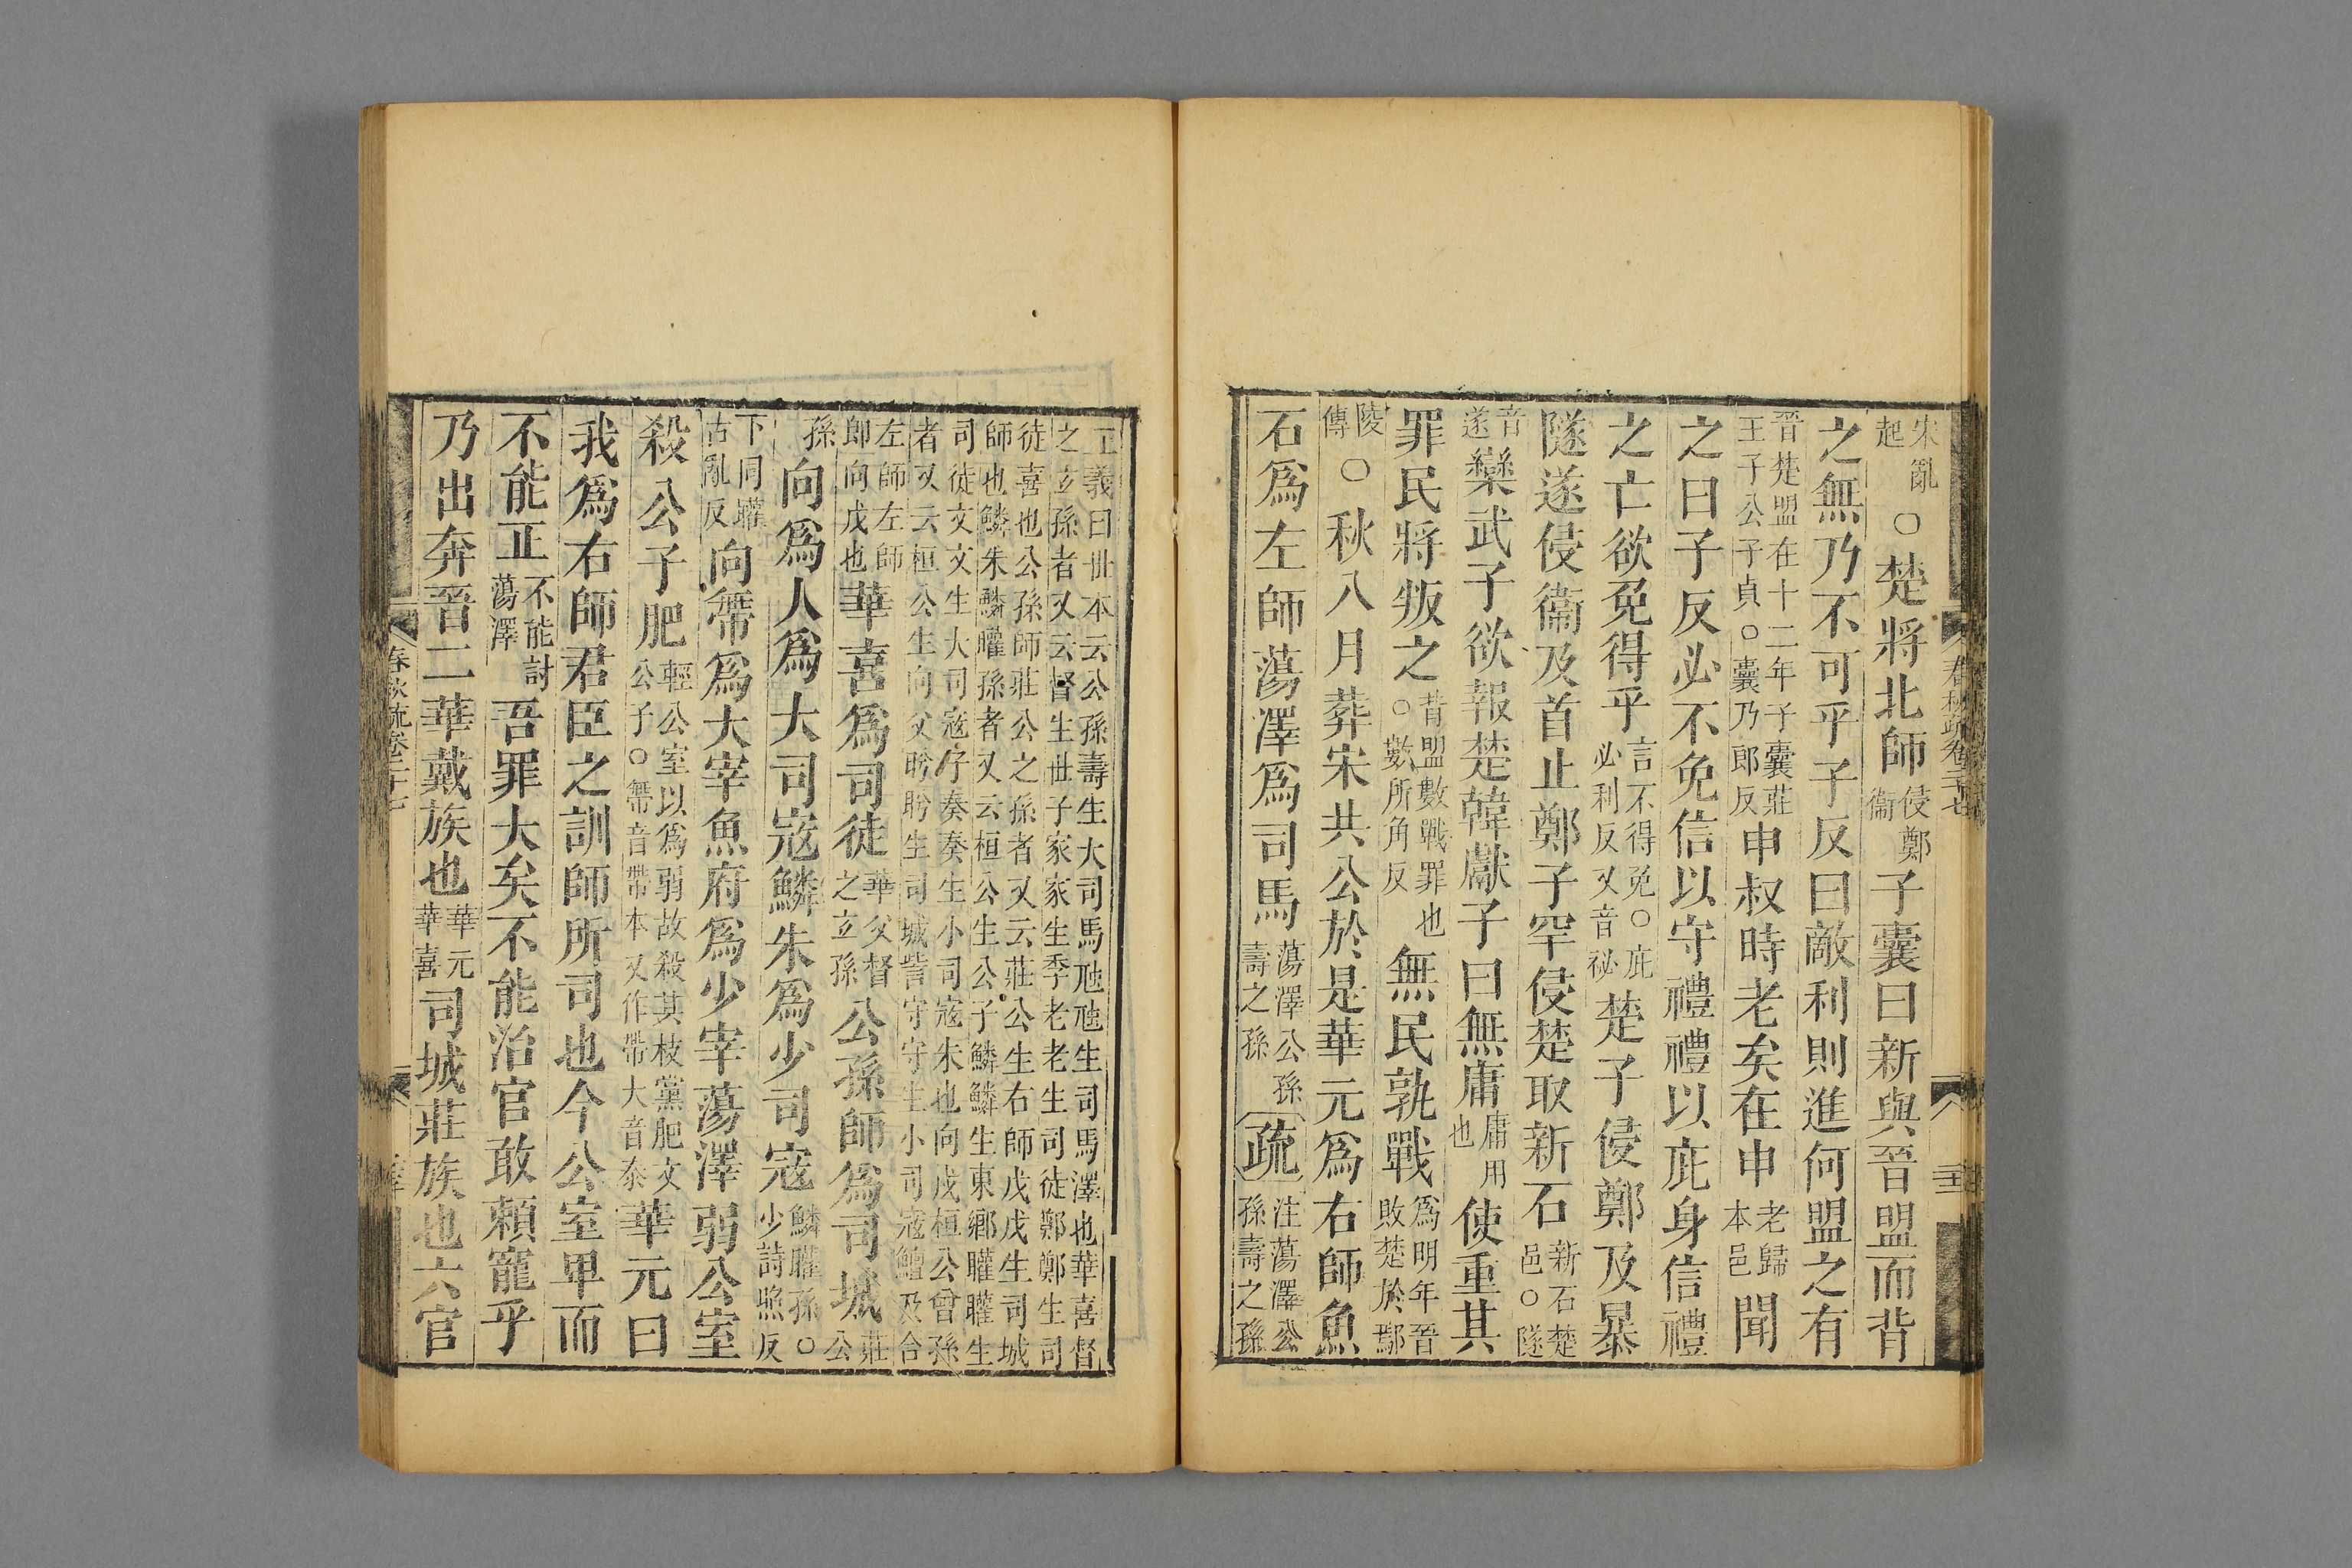 宋亂起○楚將北師侵鄭衞子囊曰新與晉盟而背
之無乃不可乎子反曰敵利則進何盟之有
晉楚盟在十二年子囊莊王子公子貞○囊乃郎反申叔時老矣在申老歸本邑聞
之曰子反必不免信以守禮禮以庇身信禮
之亡欲免得乎言不得免○庇必利反又音祕楚子侵鄭及暴
隧遂侵衞及首止鄭子罕侵楚取新石新石楚邑○隧
音遂欒武子欲報楚韓獻子曰無庸庸用也使重其
罪民將叛之昔盟數戰罪也○數所角反無民孰戰爲明年晉敗楚於鄢
陵傳○秋八月葬宋共公於是華元爲右師魚
石爲左師蕩澤爲司馬蕩澤公孫壽之孫疏注蕩澤公孫壽之孫
正義曰世本云公孫壽生大司馬虺虺生司馬澤也華喜督
之玄孫者又云督生世子家家生季老老生司徒鄭鄭生司
徒喜也公孫師莊公之孫者又云莊公生右師戊戊生司城
師也鱗朱鱗矔孫者又云桓公生公子鱗鱗生東鄉矔矔生
司徒文文生大司寇子奏奏生小司寇朱也向戌桓公曾孫
者又云桓公生向父肹肹生司城訾守守生小司寇鱣及合
左師左師即向戌也華喜爲司徒華父督之玄孫公孫師爲司城莊公
孫向爲人爲大司寇鱗朱爲少司寇鱗矔孫○少詩照反
下同矔古亂反向帶爲大宰魚府爲少宰蕩澤弱公室
殺公子肥輕公室以爲弱故殺其枝黨肥文公子○帶音帶本又作帶大音泰華元曰
我爲右師君臣之訓師所司也今公室卑而
不能正不能討蕩澤吾罪大矣不能治官敢賴寵乎
乃出奔晉二華戴族也華元華喜司城莊族也六官
春秋疏卷二十七